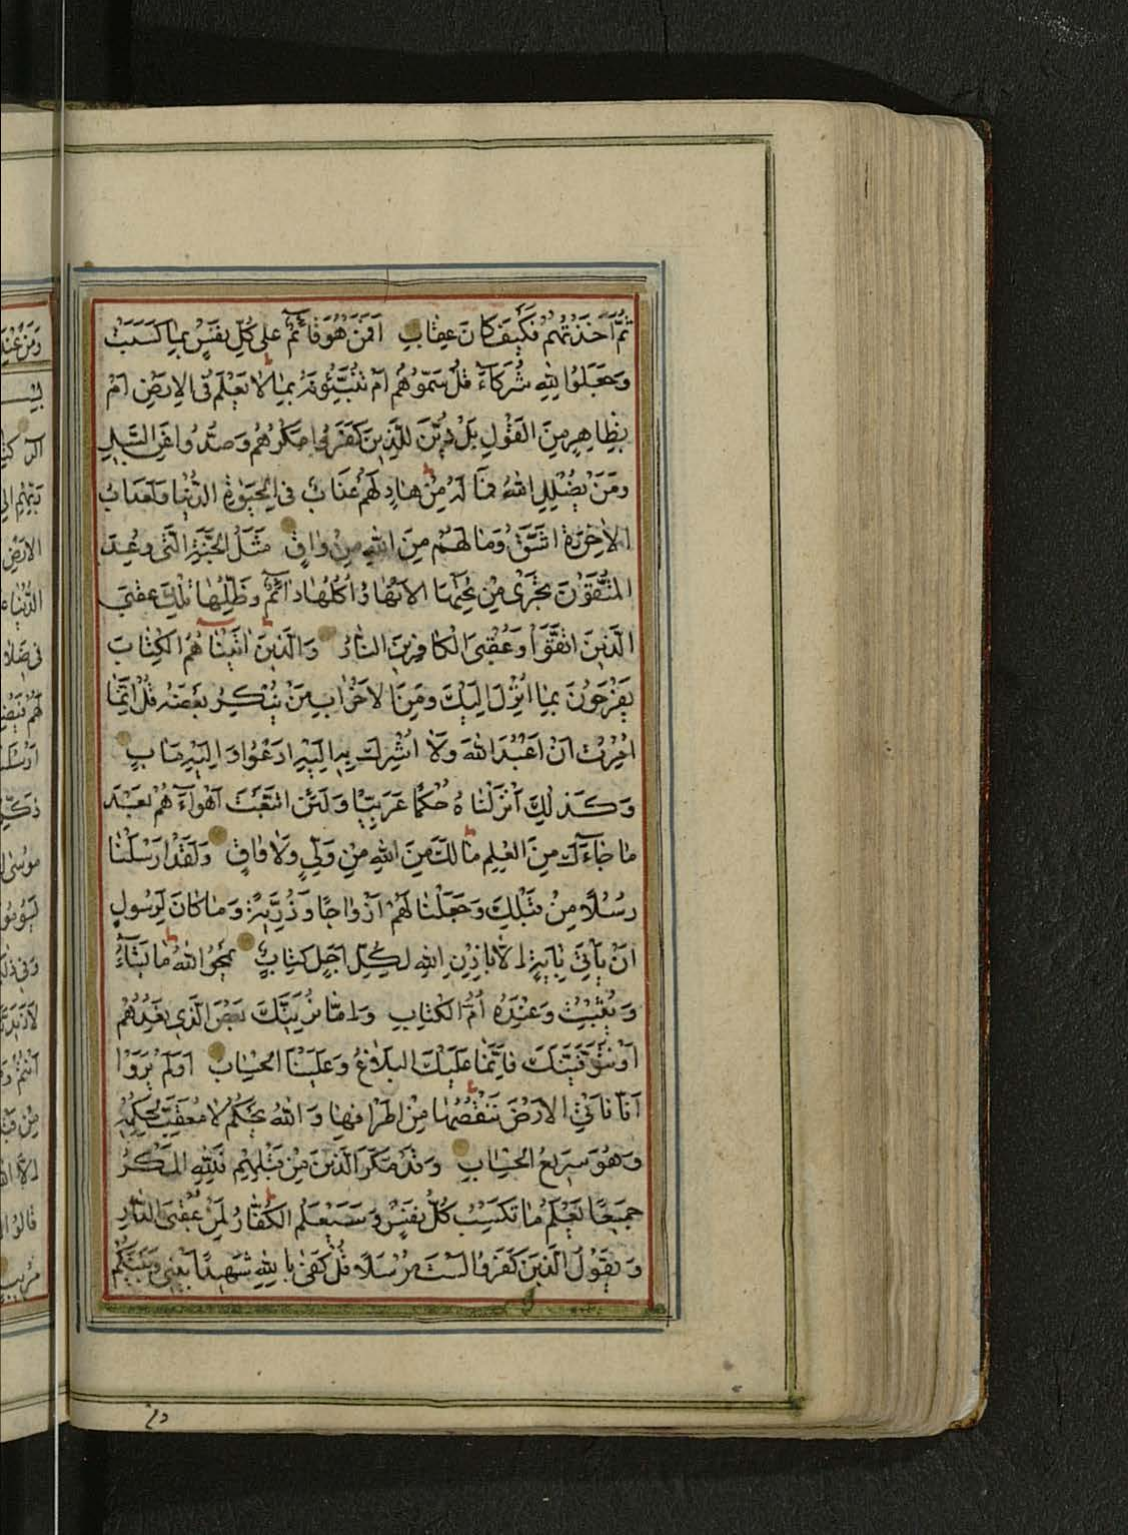 ثُمَّ اَخَذْتُهُمْ فَكَيْفَ كَانَ عِقٰابِ اَفَمَنْ هُوَ قٰائِمٌ عَلٰى كُلِّ نَفْسٍ بِمٰا كَسَبَتْ
وَجَعَلُوا لِلّٰهِ شُرَكٰاءَ قُلْ سَمُّوهُمْ اَمْ تُنَبِّئُونَهُ بِمٰا لٰا يَعْلَمُ فِى الْاَرْضِ اَمْ
بِظٰاهِرٍ مِنَ الْقَوْلِ بَلْ زُيِّنَ لِلَّذِينَ كَفَرُوا مَكْرُهُمْ وَصُدُّوا عَنِ السَّبِيلِ
وَمَنْ يُضْلِلِ اللّٰهُ فَمٰا لَهُ مِنْ هٰادٍ لَهُمْ عَذٰابٌ فِى الْحَيٰوةِ الدُّنْيٰا وَلَعَذٰابُ
الْاٰخِرَةِ اَشَقُّ وَمٰا لَهُمْ مِنَ اللّٰهِ مِنْ وٰاقٍ مَثَلُ الْجَنَّةِ الَّتِى وُعِدَ
الْمُتَّقُونَ تَجْرِى مِنْ تَحْتِهَا الْاَنْهٰارُ اُكُلُهٰا دٰائِمٌ وَظِلُّهٰا تِلْكَ عُقْبَى
الَّذِينَ اتَّقَوْا وَعُقْبَى الْكٰافِرِينَ النّٰارُ وَالَّذِينَ اٰتَيْنٰاهُمُ الْكِتٰابَ
يَفْرَحُونَ بِمٰا اُنْزِلَ اِلَيْكَ وَمِنَ الْاَحْزٰابِ مَنْ يُنْكِرُ بَعْضَهُ قُلْ اِنَّمٰا
اُمِرْتُ اَنْ اَعْبُدَ اللّٰهَ وَلٰا اُشْرِكَ بِهِ اِلَيْهِ اَدْعُوا وَاِلَيْهِ مَاٰبِ
وَكَذٰلِكَ اَنْزَلْنٰاهُ حُكْمًا عَرَبِيًّا وَلَئِنِ اتَّبَعْتَ اَهْوٰاءَهُمْ بَعْدَ
مٰا جٰاءَكَ مِنَ الْعِلْمِ مٰا لَكَ مِنَ اللّٰهِ مِنْ وَلِىٍّ وَلٰا وٰاقٍ وَلَقَدْ اَرْسَلْنٰا
رُسُلًا مِنْ قَبْلِكَ وَجَعَلْنٰا لَهُمْ اَزْوٰاجًا وَذُرِّيَّةً وَمٰا كٰانَ لِرَسُولٍ
اَنْ يَأْتِىَ بِاٰيَةٍ اِلّٰا بِاِذْنِ اللّٰهِ لِكُلِّ اَجَلٍ كِتٰابٌ يَمْحُوا اللّٰهُ مٰا يَشٰاءُ
وَيُثْبِتُ وَعِنْدَهُ اُمُّ الْكِتٰابِ وَاِمّٰا نُرِيَنَّكَ بَعْضَ الَّذِى نَعِدُهُمْ
اَوْ نَتَوَفَّيَنَّكَ فَاِنَّمٰا عَلَيْكَ الْبَلٰاغُ وَعَلَيْنَا الْحِسٰابُ اَوَلَمْ يَرَوْا
اَنّٰا نَأْتِى الْاَرْضَ نَنْقُصُهٰا مِنْ اَطْرٰافِهٰا وَاللّٰهُ يَحْكُمُ لٰا مُعَقِّبَ لِحُكْمِهِ
وَهُوَ سَرِيعُ الْحِسٰابِ وَقَدْ مَكَرَ الَّذِينَ مِنْ قَبْلِهِمْ فَلِلّٰهِ الْمَكْرُ
جَمِيعًا يَعْلَمُ مٰا تَكْسِبُ كُلُّ نَفْسٍ وَسَيَعْلَمُ الْكُفّٰارُ لِمَنْ عُقْبَى الدّٰارِ
وَيَقُولُ الَّذِينَ كَفَرُوا لَسْتَ مُرْسَلًا قُلْ كَفٰى بِاللّٰهِ شَهِيدًا بَيْنِى وَبَيْنَكُمْ